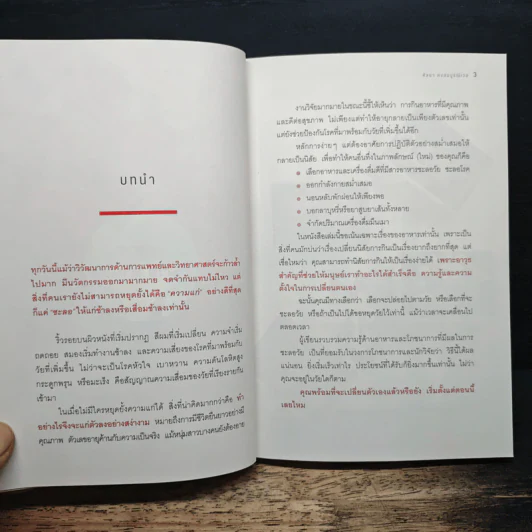 บทนำ
ทุกวันนี้แม้ว่าวิวัฒนาการด้านการแพทย์และวิทยาศาสตร์จะก้าวล้ำ
ไปมาก มีนวัตกรรมออกมามากมาย จดจำกันแทบไม่ไหว แต่
สิ่งที่คนเรายังไม่สามารถหยุดยั้งได้คือ "ความแก่" อย่างดีที่สุด
ก็แค่ "ชะลอ" ให้แก่ช้าลงหรือเสื่อมช้าลงเท่านั้น
ริ้วรอยบนผิวหนังที่เริ่มปรากฏ สีผมที่เริ่มเปลี่ยน ความจำเริ่ม
ถดถอย สมองเริ่มทำงานช้าลง และความเสี่ยงของโรคที่มาพร้อมกับ
วัยที่เพิ่มขึ้น ไม่ว่าจะเป็นโรคหัวใจ เบาหวาน ความดันโลหิตสูง
กระดูกพรุน หรือมะเร็ง คือสัญญาณความเสื่อมของวัยที่เรียงรายกัน
เข้ามา
ในเมื่อไม่มีใครหยุดยั้งความแก่ได้ สิ่งที่น่าคิดมากกว่าคือ ทำ
อย่างไรจึงจะแก่ตัวลงอย่างสง่างาม หมายถึงการมีชีวิตยืนยาวอย่างมี
คุณภาพ ตัวเลขอายุค้านกับความเป็นจริง แม้หนุ่มสาวบางคนยังต้องอาย
3
งานวิจัยมากมายในขณะนี้ชี้ให้เห็นว่า การกินอาหารที่มีคุณภาพ
และดีต่อสุขภาพ ไม่เพียงแต่ทำให้อายุกลายเป็นเพียงตัวเลขเท่านั้น
แต่ยังช่วยป้องกันโรคที่มาพร้อมกับวัยที่เพิ่มขึ้นได้อีก
หลักการง่ายๆ แต่ต้องอาศัยการปฏิบัติตัวอย่างสม่ำเสมอให้
กลายเป็นนิสัย เพื่อทำให้คนอื่นทึ่งในภาพลักษณ์ (ใหม่) ของคุณก็คือ
เลือกอาหารและเครื่องดื่มดีที่มีสารอาหารชะลอวัย ชะลอโรค
ออกกำลังกายสม่ำเสมอ
นอนหลับพักผ่อนให้เพียงพอ
บอกลาบุหรี่หรือยาสูบยาเส้นทั้งหลาย
จำกัดปริมาณเครื่องดื่มมึนเมา
ในหนังสือเล่มนี้ขอเน้นเฉพาะเรื่องของอาหารเท่านั้น เพราะเป็น
สิ่งที่คนมักบ่นว่าเรื่องเปลี่ยนนิสัยการกินเป็นเรื่องยากถึงยากที่สุด แต่
เชื่อไหมว่า คุณสามารถทำนิสัยการกินให้เป็นเรื่องง่ายได้ เพราะอาวุธ
สำคัญที่ช่วยให้มนุษย์เราทำอะไรได้สำเร็จคือ ความรู้และความ
ตั้งใจในการเปลี่ยนตนเอง
ฉะนั้นคุณมีทางเลือกว่า เลือกจะปล่อยไปตามวัย หรือเลือกที่จะ
ชะลอวัย หรือถ้าเป็นไปได้ขอหยุดวัยไว้เท่านี้ แม้ว่าเวลาจะเคลื่อนไป
ตลอดเวลา
ผู้เขียนรวบรวมความรู้ด้านอาหารและโภชนาการที่มีผลในการ
ชะลอวัย เป็นที่ยอมรับในวงการโภชนาการและนักวิจัยว่า วิธีนี้ได้ผล
แน่นอน ยิ่งเริ่มเร็วเท่าไร ประโยชน์ที่ได้รับก็ยิ่งมากขึ้นเท่านั้น ไม่ว่า
คุณจะอยู่ในวัยใดก็ตาม
คุณพร้อมที่จะเปลี่ยนตัวเองแล้วหรือยัง เริ่มตั้งแต่ตอนนี้
เลยไหม